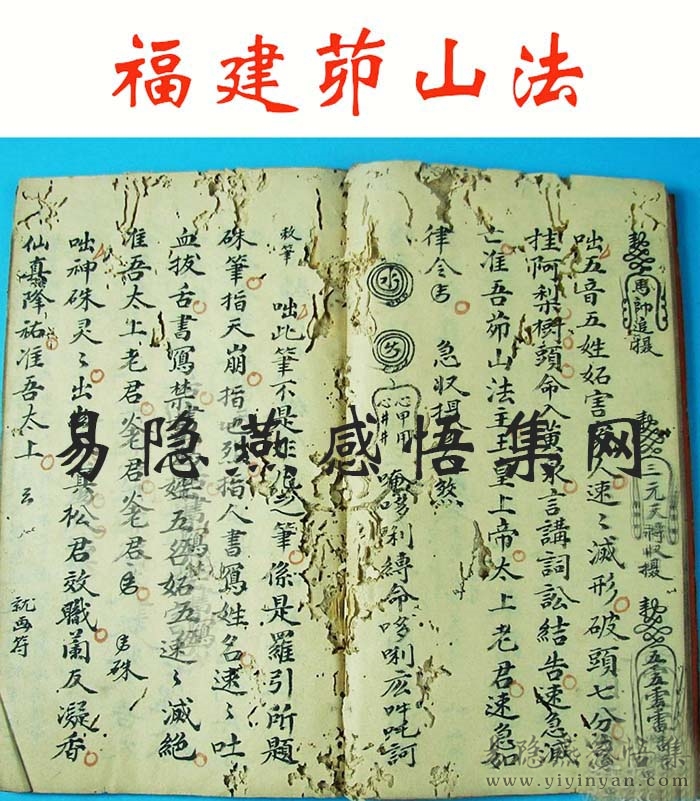 福建茆山法
勅 馬師追攝
勅 三元天將收攝
勅 五雷
咄五音五姓妬害人速〻滅形破頭七分
挂阿梨樹頭命入黃泉言講詞訟結告速急滅
亡准吾茆山法主玉皇上帝太上老君速急如
律令
急收攝煞
唵哆唎縛命哆唎吽吒訶
敕筆
咄此筆不是非凡之筆係是羅引所題
硃筆指天崩指地烈指人書寫姓名速〻吐
血拔舌書寫禁姓五名妬害速〻滅絕
准吾太上老君
硃
咄神硃灵〻出松君效職蘭友凝香
仙真降祐准吾太上云〻
就画符
易隐燕感悟集网
易隐燕感悟集
www.yiyinyan.com